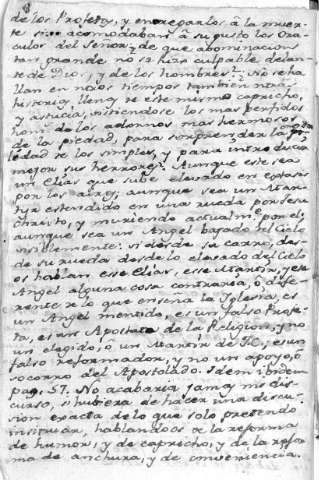 de los Profetas, y entregarlos â la muer-
te si no acomodaban â su gusto los Ora-
culos del Señor, y de que abominacion
tan grande no se hizo culpable delan-
te de Dios, y de los hombres? No se ha
llan en nros tiempos tambien otras
historias llenas de este mismo capricho,
y astucia, vistiendose los mas perfidos
hom.s de los adornos mas hermosos
de la piedad, para sorprender la
piedad de los simples, y para introducir
mejor sus herrores? Aunque este sea
un Elias que sube elevado en extasis
por los aires; aunque sea un Mar-
tyr extendido en una rueda por Jesu
Christo, y muriendo actualm.e por el;
aunque sea un Angel bajado del Cielo
visiblemente: si desde su carro, des-
de su rueda desde lo elevado del Cielo
os hablan ese Elias, ese Martir, y ese
Angel alguna cosa contraria, ô dife-
rente de lo que enseña la Iglesia, es
un Angel mentido, es un falso Profe-
ta, es un Apostata de la Religion, y no
un elegido, ô un Martir de JC, es un
falso reformador, y no un apoyo, ô
socorro del Apostolado. Idem ibidem
pag. 57. No acabaria jamas mi dis-
curso, si hubiera de hacer una discu-
sion exacta de lo que solo pretendo
insinuar, hablandoos de la reforma
de humor, y de capricho, y de la refor
ma de anchura, y de conveniencia.